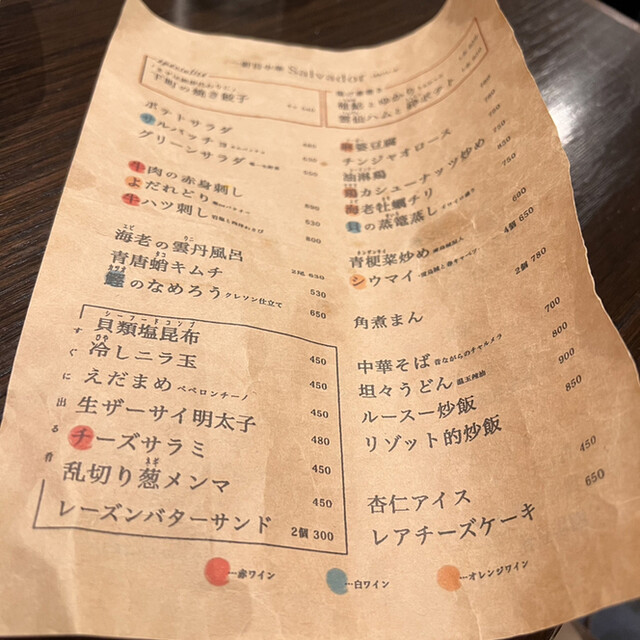 Salvador
specialite
干町の焼き餃子
ポテトサラダ
サルバッチョ
グリーンサラダ
牛肉の赤身刺し
よだれどり
牛ハツ刺し
海老の雲丹風呂 2尾 630
青唐蛸キムチ 530
鰹のなめろう クレソン仕立て 650
すぐに出る肴
シーフードコンブ
貝類塩昆布 450
冷しニラ玉 450
えだまめ ペペロンチーノ 450
生ザーサイ明太子 480
チーズサラミ 450
乱切り葱メンマ 450
レーズンバターサンド 2個 300
雲仙ハムと 卵ポテト
麻婆豆腐
チンジャオロース
油淋鶏
鶏カシューナッツ炒め
海老牡蠣チリ
貝の蒸籠蒸し
青梗菜炒め 690
シウマイ 4個 650
角煮まん 2個 780
中華そば 昔ながらのチャルメラ 700
坦々うどん 温玉辣油 800
ルースー炒飯 900
リゾット的炒飯 850
杏仁アイス 450
レアチーズケーキ 650
…赤ワイン
…白ワイン
…オレンジワイン